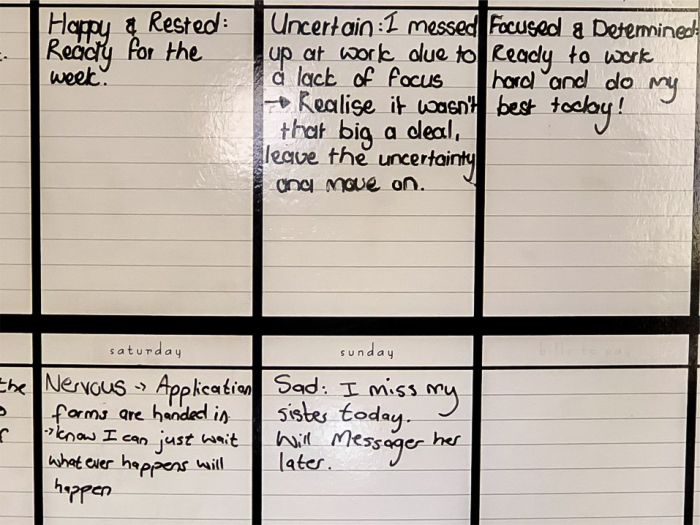 Happy & Rested:
Ready for the
week.
Uncertain: I messed
up at work due to
a lack of focus
→ Realise it wasn't
that big a deal,
leave the uncertainty
and move on.
Focused & Determined:
Ready to work
hard and do my
best today!
saturday
Nervous → Application
forms are handed in
→ know I can just wait
what ever happens will
happen
sunday
Sad: I miss my
sister today.
Will Messager her
later.
bills to pay
the